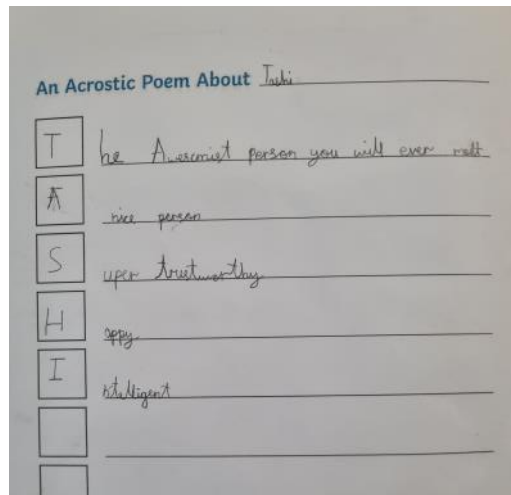 An Acrostic Poem About Tashi
T he Awesomist person you will ever mett
A nice person
S uper trustworthy
H appy
I ntelligent